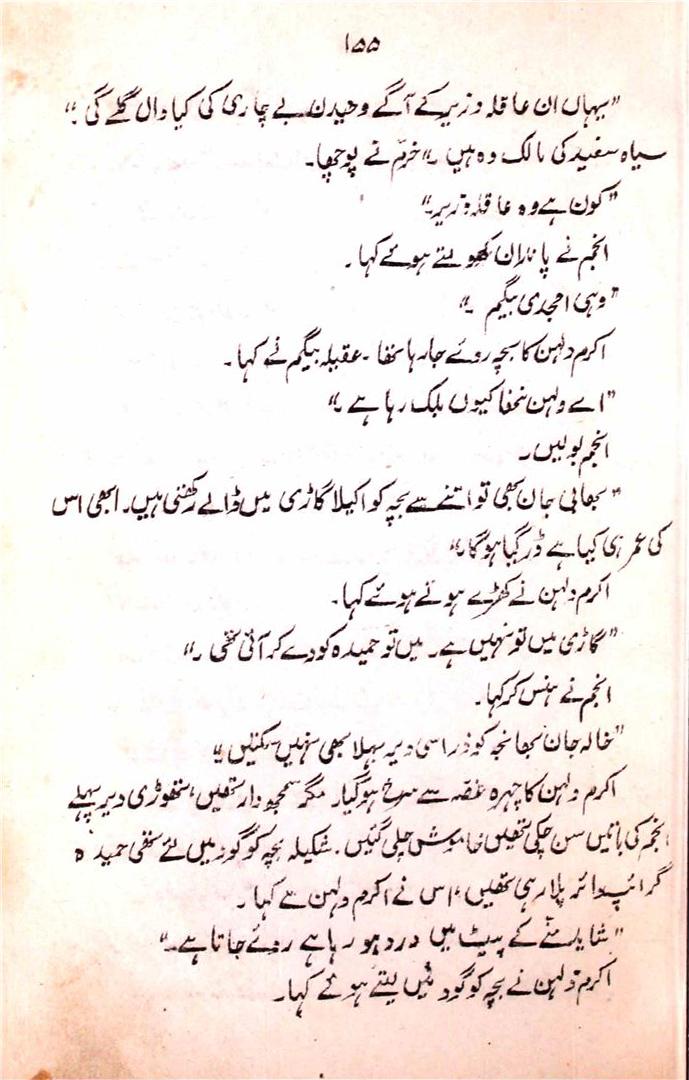 ۱۵۵
"یہاں ان عاقلہ وزیر کے آگے وحیدن بے چاری کی کیا دال گلے گی ۔"
سیاہ سفید کی مالک وہ ہیں ۔" خرم نے پوچھا۔
"کون ہے وہ عاقلہ وزیر۔"
انجم نے پاندان کھولتے ہوئے کہا ۔
"وہی امجدی بیگم ۔"
اکرم دلہن کا بچہ روئے جا رہا تھا ۔ عقیلہ بیگم نے کہا ۔
"اے دلہن ننھا کیوں بلک رہا ہے ۔"
انجم بولیں۔
"بھابی جان بھی تو اتنے سے بچہ کو اکیلا گاڑی میں ڈالے رکھتی ہیں۔ ابھی اس
کی عمر ہی کیا ہے ڈر گیا ہوگا۔"
اکرم دلہن نے کھڑے ہوتے ہوئے کہا۔
"گاڑی میں تو نہیں ہے۔ میں تو حمیدہ کو دے کر آئی تھی ۔"
انجم نے ہنس کر کہا۔
"خالہ جان بھانجہ کو ذرا سی دیر بہلا بھی نہیں سکتیں ۔"
اکرم دلہن کا چہرہ غصہ سے سرخ ہوگیا۔ مگر سمجھ دار تھیں، تھوڑی دیر پہلے
انجم کی باتیں سن چکی تھیں خاموش چلی گئیں۔ شکیلہ بچہ کو گود میں لئے تھی حمیدہ
گرائپ واٹر پلا رہی تھیں، اس نے اکرم دلہن سے کہا ۔
"شاید منے کے پیٹ میں درد ہو رہا ہے روئے جاتا ہے۔"
اکرم دلہن نے بچہ کو گود میں لیتے ہوئے کہا۔